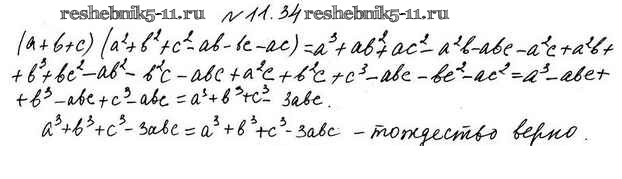 reshebnik5-11.ru №11.34 reshebnik5-11.ru
(a+b+c)(a²+b²+c²-ab-bc-ac)=a³+ab²+ac²-a²b-abc-a²c+a²b+
+b³+bc²-ab²-b²c-abc+a²c+b²c+c³-abc-bc²-ac²=a³-abc+
+b³-abc+c³-abc=a³+b³+c³-3abc.
a³+b³+c³-3abc=a³+b³+c³-3abc - тождество верно.